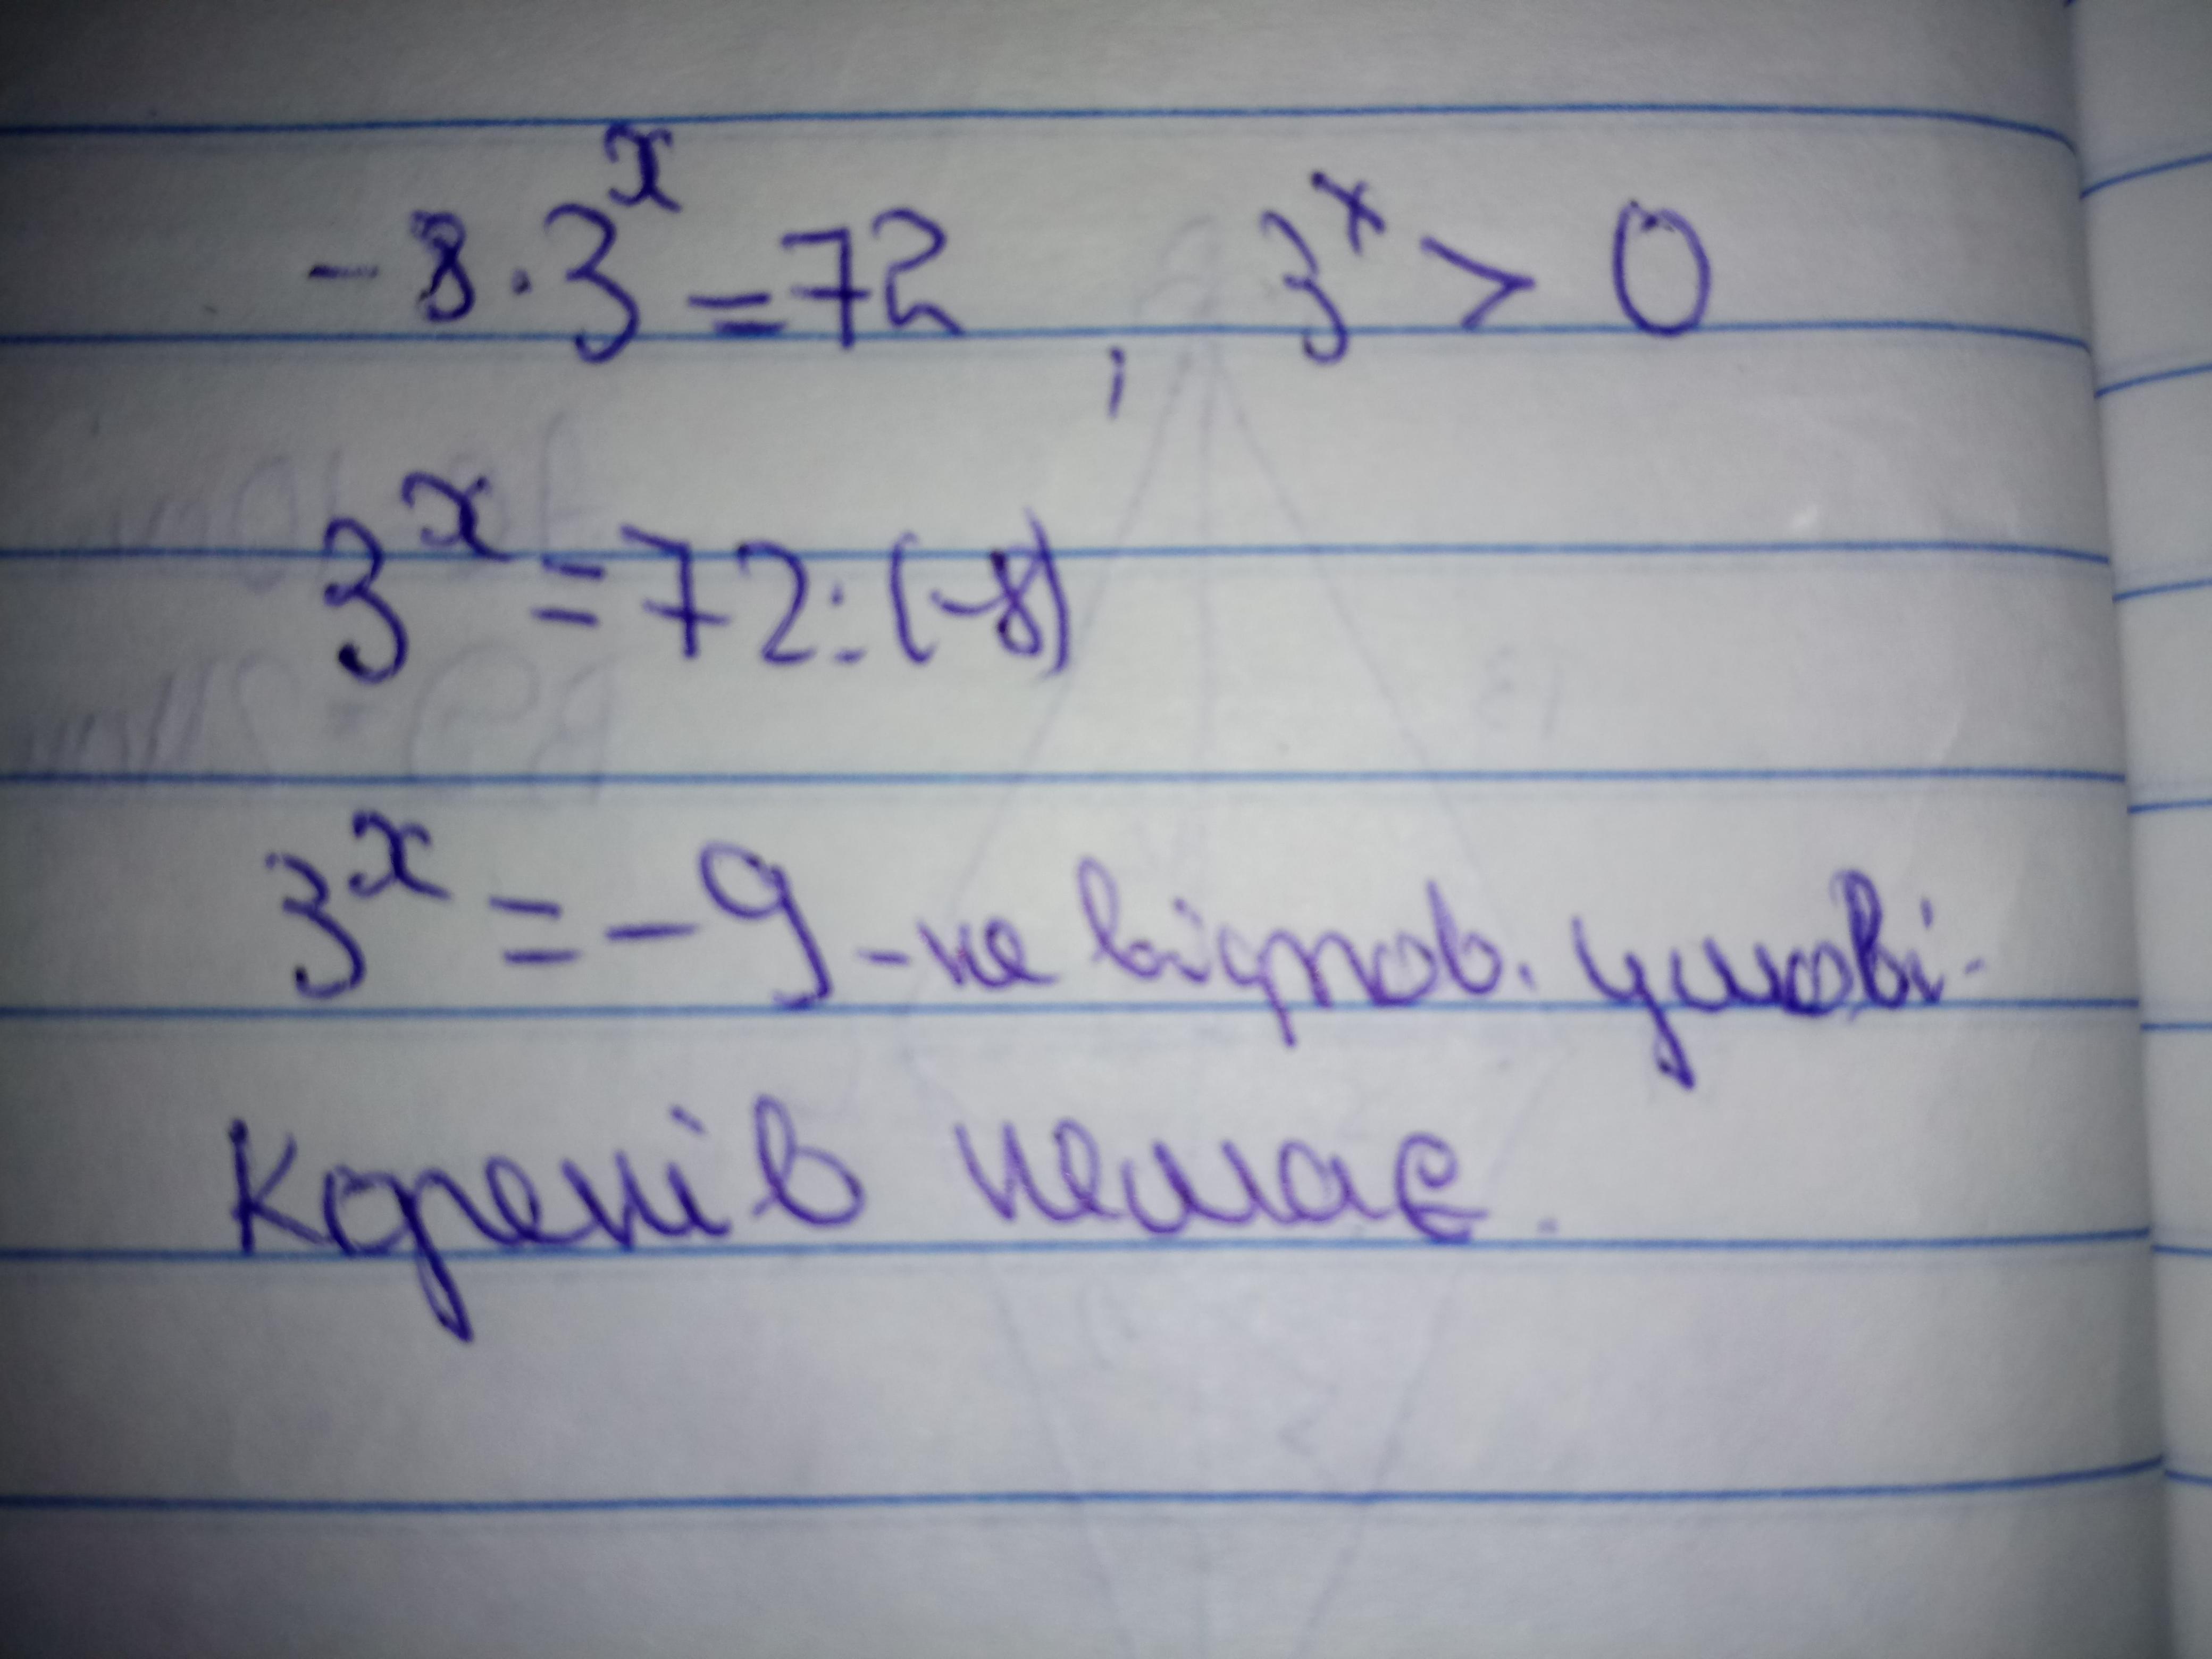 -8·3^x=72, 3^x > 0
3^x=72:(-8)
3^x=-9-не відпов. умові.
Коренів немає.